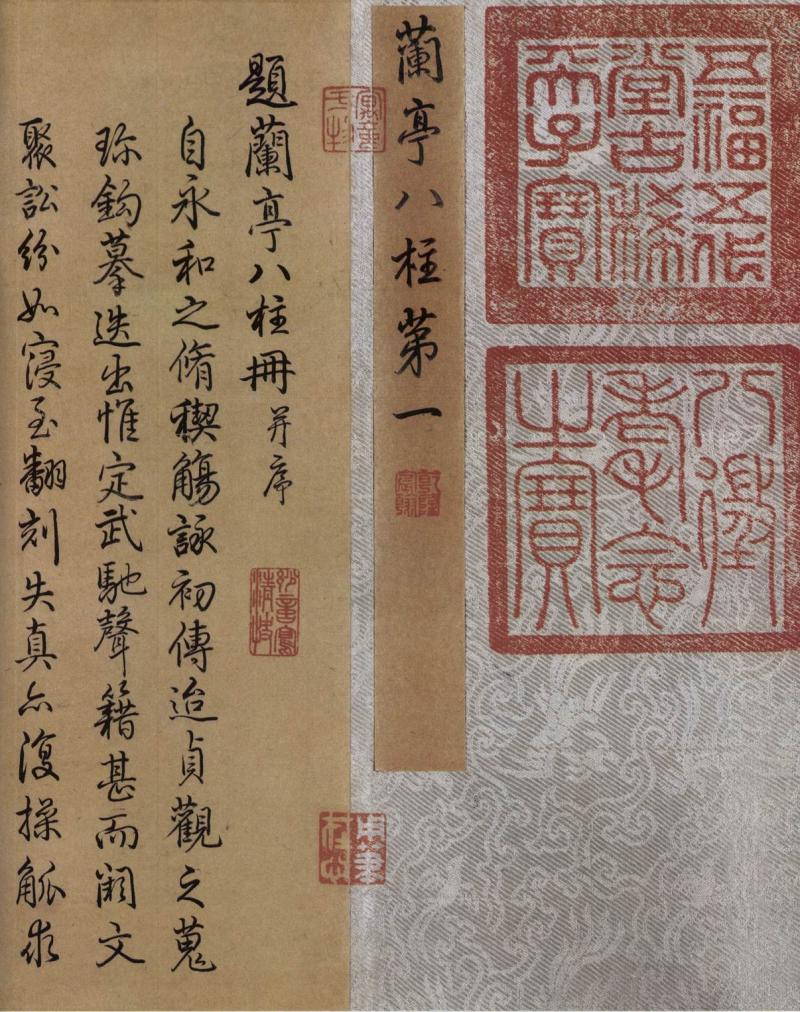 五福五代
堂古稀
天子寶
八徵
耄念
之寶
蘭亭八柱苐一
乾隆
宸翰
用筆
在心
題蘭亭八柱冊并序
自永和之脩稧觴詠初傳迨貞觀之蒐
珎鈎摹迭出惟定武馳聲籍甚而闕文
聚訟紛如寖至翻刻失真亦復操觚求